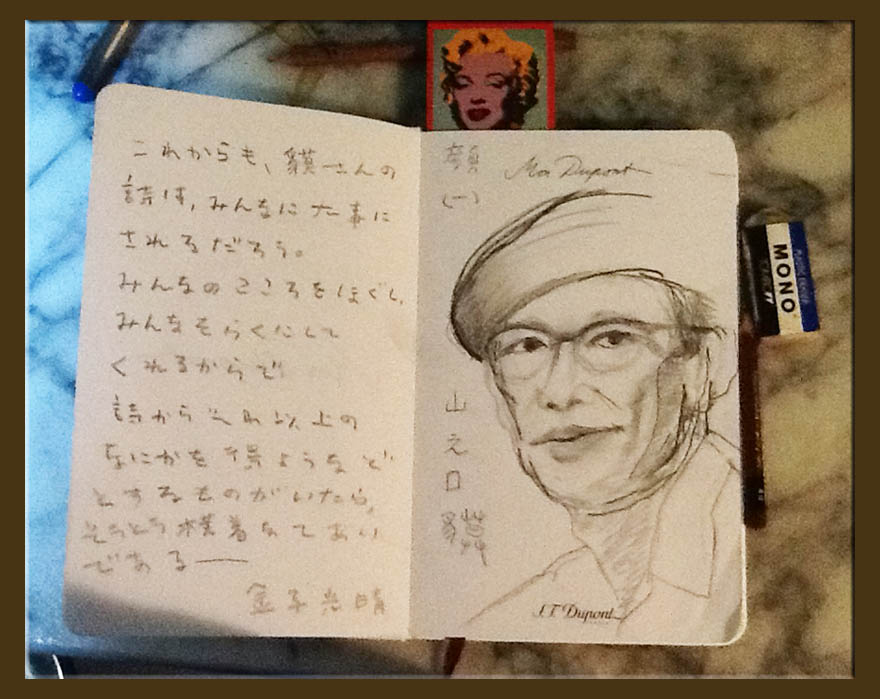 これからも、貘さんの
詩は、みんなに大事に
されるだろう。
みんなのこころをほぐし、
みんなをらくにして
くれるからで
詩からそれ以上の
なにかを得ようなど
とするものがいたら、
そうとう横着なてあい
である——
金子光晴
顔
(一)
Mon Dupont
山之口貘
S.T. Dupont
MONO
PLASTIC ERASER